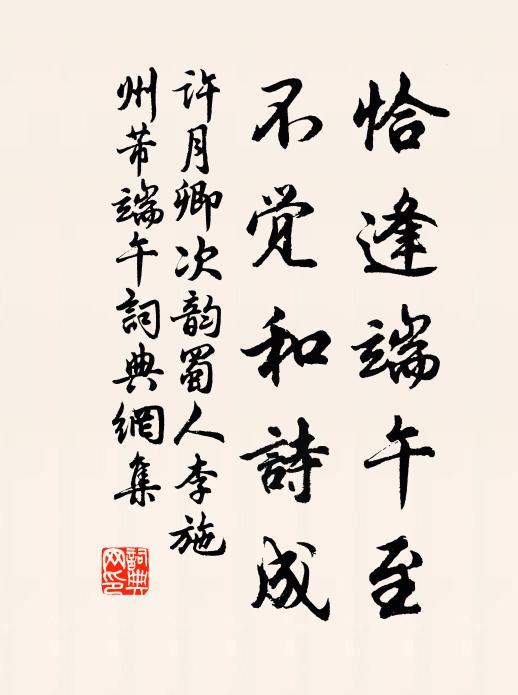 恰逢端午至
不觉和詩成
許月卿次韵蜀人李施
州芾端午詞典網集
詞典
网印